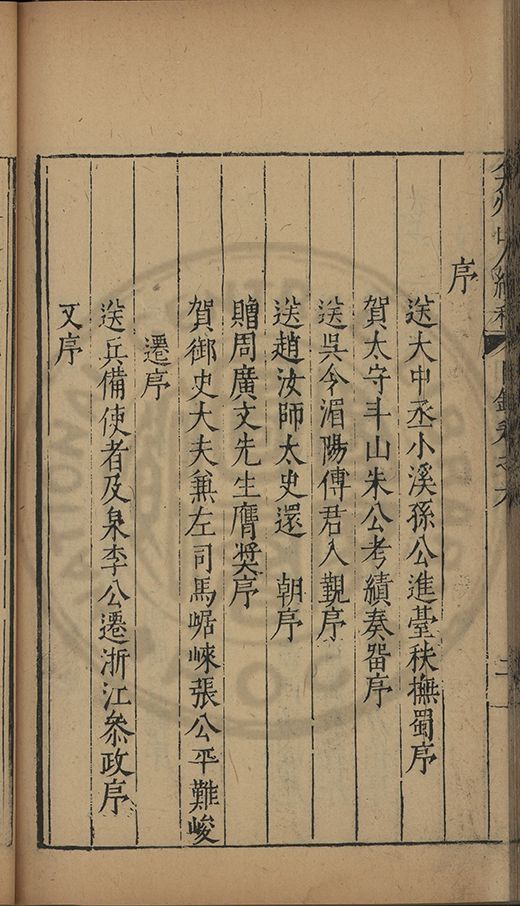 弇州山人續稿 目錄卷之六 二
序
送大中丞小溪孫公進臺秩撫蜀序
賀太守斗山朱公考績奏畱序
送吳令湄陽傅君入覲序
送趙汝師太史還 朝序
贈周廣文先生膺奬序
賀御史大夫兼左司馬崌崍張公平難峻
遷序
送兵備使者及泉李公遷浙江叅政序
又序